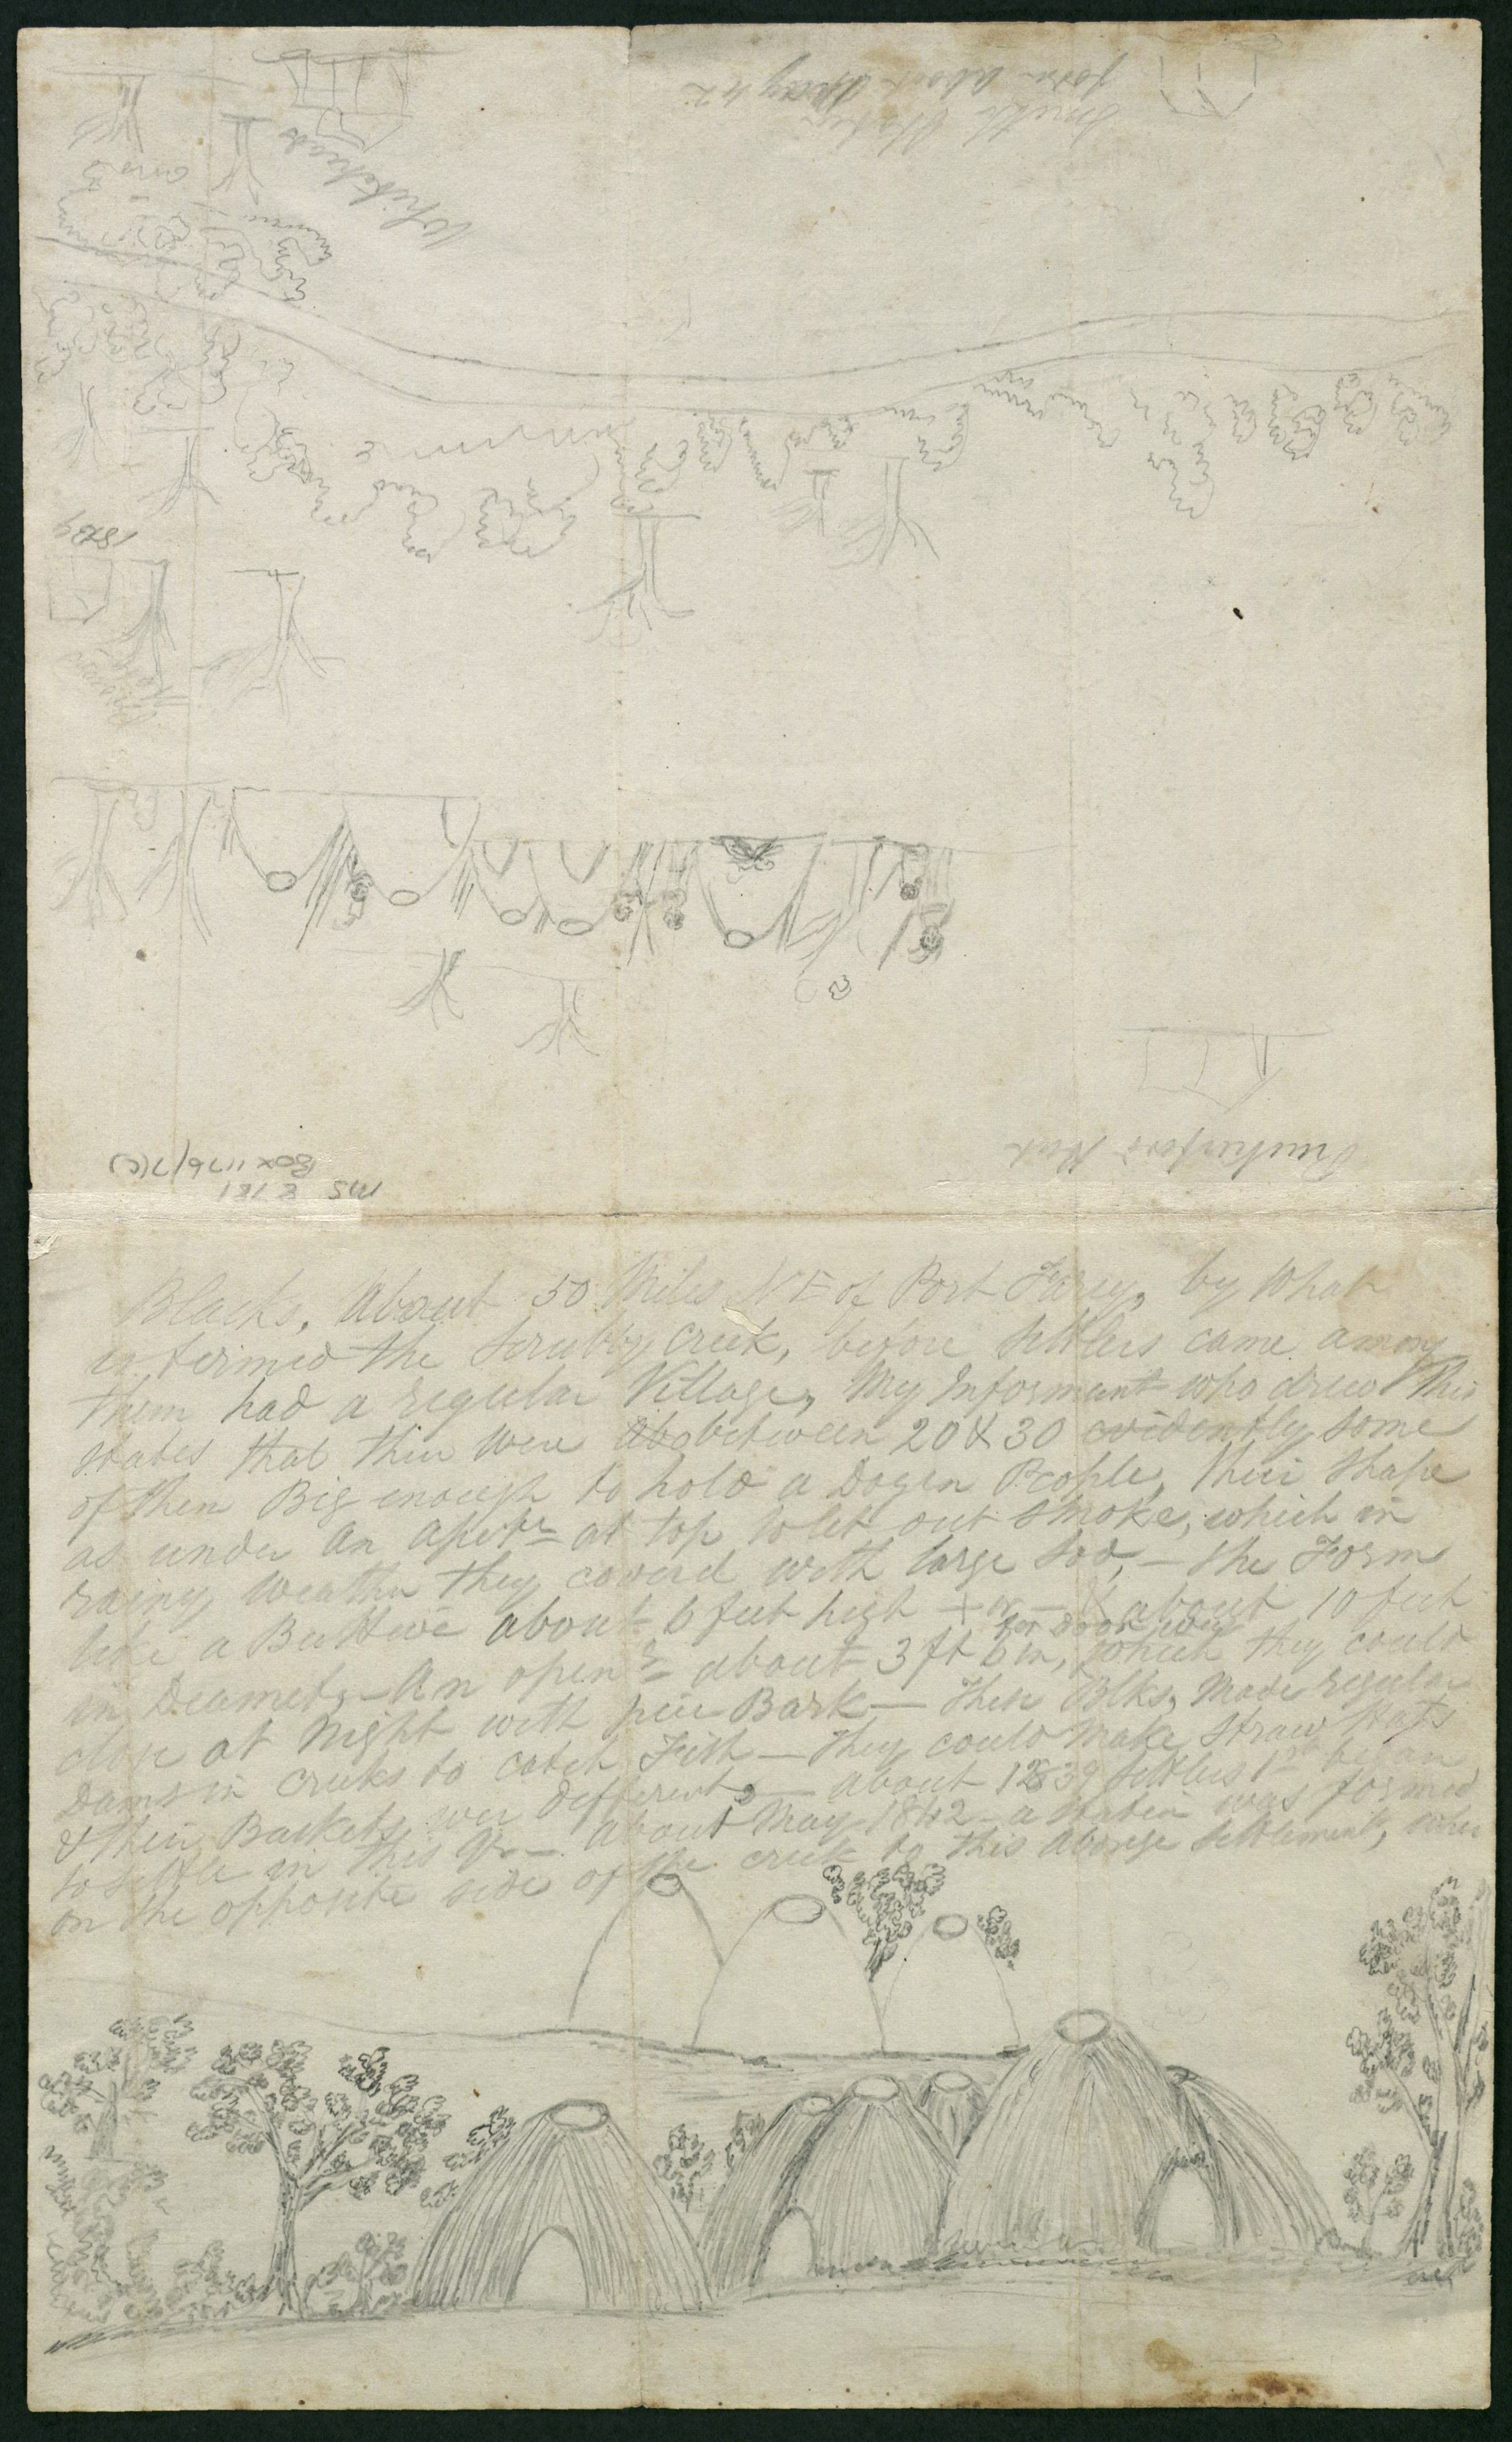 Smith Station
form about May 42
Whitehead
1839
Rutherford Hut
MS 8181
Box 1176/7(c)
Blacks, About 50 Miles NE of Port Fairy, by What
is termed the Scrubby Creek, before settlers came among
them had a regular Village, My Informant who drew this
states that thier were between 20 & 30 evidently some
of them Big enough to hold a Dozen People, their Shape
as under An apetr at top to let out smoke, which in
rainy weather they coverd with large Sod, – the Form
like a BeeHive about 6 feet high + or – & about 10 feet
in Diameter – An openg about 3 ft 6 in, for door way which they could
close at Night with Bark – these Blks, Made regular
Dams in creeks to catch Fish – They could make, Straw Hats
& their Baskets wer different, – about 1839 settlers 1st began
to settle in this – about May 1842 – a station was formed
on the opposite side of the creek to this aborige settlement, when